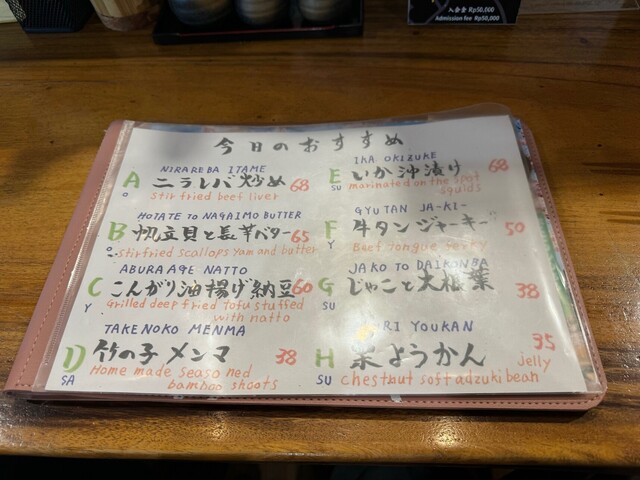 入会金 Rp50,000
Admission fee Rp50,000
今日のおすすめ
NIRAREBA ITAME
A ニラレバ炒め 68
O
Stir fried beef liver
HOTATE to NAGAIMO BUTTER
B 帆立貝と長芋バター 65
O
stirfried scallops Yam and butter
ABURAAGE NATTO
C こんがり油揚げ納豆 60
Y
Grilled deep fried Tofu stuffed
with natto
TAKENOKO MENMA
D 竹の子メンマ 38
SA
Home made Seasoned
bamboo shoots
IKA OKIZUKE
E いか沖漬け 68
SU
marinated on the spot
squids
GYUTAN JA-KI-
F 牛タンジャーキー 50
Y
Beef tongue jerky
JAKO TO DAIKONBA
G じゃこと大根葉 38
SU
URI YOUKAN
H 栗ようかん 35
SU
jelly
chestnut soft adzuki bean